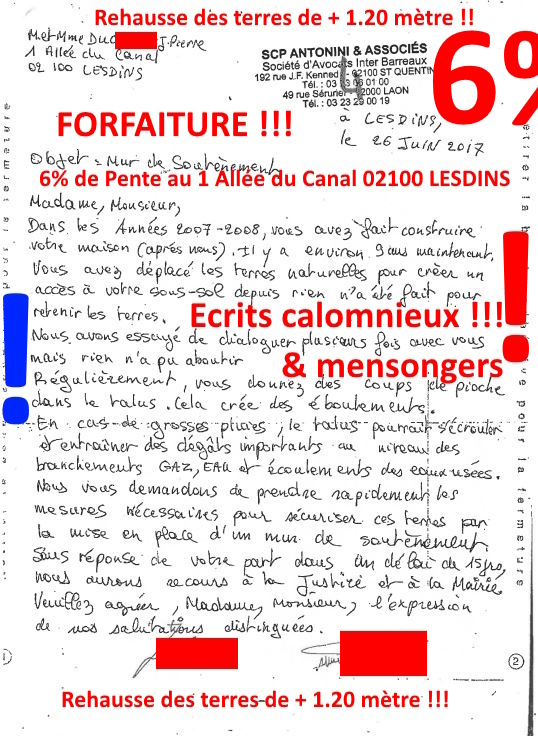 Rehausse des terres de + 1.20 mètre !!
M.et Mme Duc J.Pierre
1 Allée du Canal
02 100 LESDINS
SCP ANTONINI & ASSOCIÉS
Société d'Avocats Inter Barreaux
192 rue J.F. Kennedy 02100 ST QUENTIN
Tél. : 03 01 00
49 rue Sérurier 02000 LAON
Tél. : 03 23 29 00 19
4
6%
FORFAITURE !!!
à LESDINS,
le 26 JUIN 2017
Objet = Mur de Soutènement
6% de Pente au 1 Allée du Canal 02100 LESDINS
Madame, Monsieur,
Dans les Années 2007-2008, vous avez fait construire
votre maison (après nous). Il y a environ 9 ans maintenant.
Vous avez déplacé les terres naturelles pour créer un
accès à votre sous-sol depuis rien n'a été fait pour
retenir les terres.
Ecrits calomnieux !!!
Nous avons essayé de dialoguer plusieurs fois avec vous
mais rien n'a pu aboutir
& mensongers
!
!
Régulièrement, vous donnez des coups de pioche
dans le talus. Cela crée des éboulements.
En cas de grosses pluies, le talus pourrait s'écrouler
et entraîner des dégâts importants au niveau des
branchements GAZ, EAU et écoulements des eaux usées.
Nous vous demandons de prendre rapidement les
mesures nécessaires pour sécuriser ces terres par
la mise en place d'un mur de soutènement.
Sans réponse de votre part dans un délai de 15 jrs,
nous aurons recours à la Justice et à la Mairie.
Veuillez agréer, Madame, Monsieur, l'expression
de nos salutations distinguées.
1
2
Rehausse des terres de + 1.20 mètre !!!